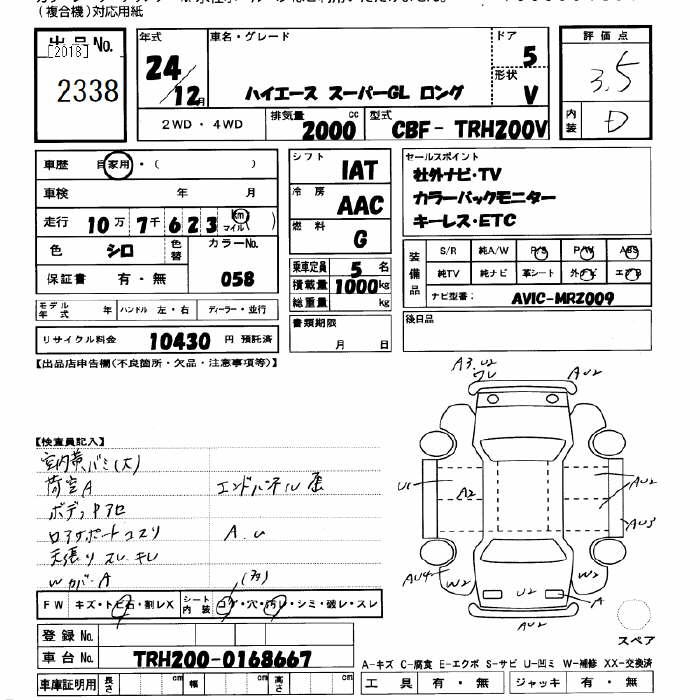 (複合機)対応用紙
出品No.
[2018]
2338
年式
24
12月
車名・グレード
ハイエース スーパーGL ロング
ドア
5
形状
V
2WD・4WD
排気量 2000 cc
型式 CBF-TRH200V
評価点
3.5
内装 D
車歴 自家用・( )
車検 年 月
走行 10万 7千 6 2 3 km マイル
色 シロ 色替
カラーNo. 058
保証書 有・無
モデル年式 年 ハンドル 左・右 ディーラー・並行
リサイクル料金 10430 円 預託済
シフト IAT
冷房 AAC
燃料 G
乗車定員 5 名
積載量 1000 kg
総重量 kg
書類期限
月 日
セールスポイント
社外ナビ・TV
カラーバックモニター
キーレス・ETC
装備品
S/R 純A/W P/S P/W ABS
純TV 純ナビ 革シート 外ナビ エアB
ナビ型番: AVIC-MRZ009
後日品
【出品店申告欄(不良箇所・欠品・注意事項等)】
【検査員記入】
荷室A
エンドパネル
ロアサポートコスリ
A.U
天張りスレ キレ
Wガバ・A
A3.U2
AU2
U1
A2
AU2
AU3
AU4
W2
W2
U2
A
スペア
FW キズ・トビ石・割レX
シート内装 コゲ・穴・汚レ・シミ・破レ・スレ
登録No.
車台No. TRH200-0168667
車庫証明用 長さ cm 幅 cm 高さ cm
A-キズ C-腐食 E-エクボ S-サビ U-凹ミ W-補修 XX-交換済
工具 有・無 ジャッキ 有・無